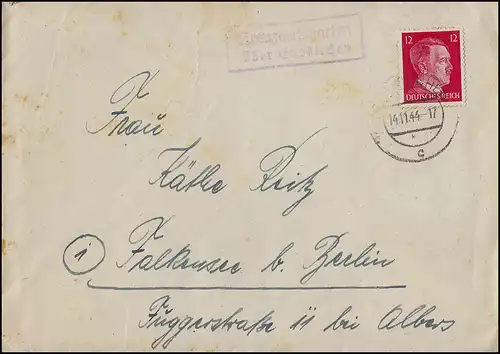 über
12 12
DEUTSCHES REICH
14.11.44-17
c
Frau
Käthe Reitz
1
Falkensee b. Berlin
Fuggerstraße 11 bei Albers